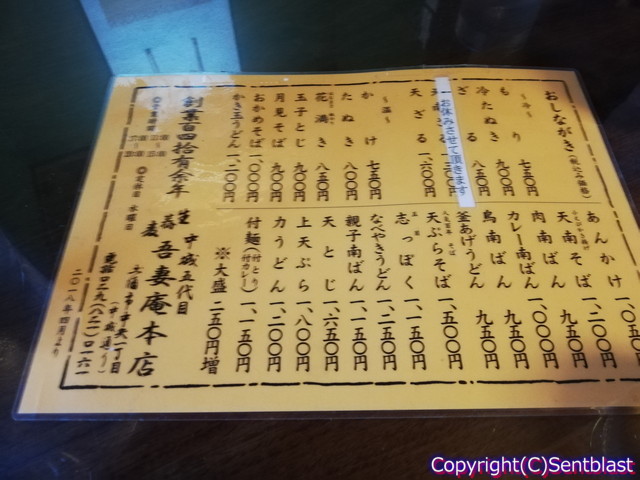 おしながき（税込み価格）
～冷～
もり 七五〇円
ざる 九〇〇円
冷たぬき 八五〇円
お休みさせて頂きます
天ざる 一、六〇〇円
～温～
かけ 七五〇円
たぬき 八〇〇円
花満き 八五〇円
玉子とじ 九〇〇円
月見そば 九〇〇円
おかめそば 一、〇〇〇円
かき玉うどん 一、一〇〇円
あんかけ 一、〇五〇円
天南そば 九五〇円
肉南ばん 一、〇〇〇円
カレー南ばん 九五〇円
鳥南ばん 九五〇円
釜あげうどん
天ぷらそば 一、五〇〇円
志っぽく 一、一五〇円
なべやきうどん 一、二五〇円
親子南ばん 一、一五〇円
天とじ 一、六五〇円
上天ぷら 一、八〇〇円
力うどん 一、〇〇〇円
付麺（付とり）（付カレー） 一、一五〇円
※大盛 二五〇円増
創業百四拾有余年
◎定休日 水曜日
中城五代目
生蕎麦 吾妻庵本店
土浦市中央一丁目
（中城通り）
電話〇二九（八二一）〇一六一
二〇一八年四月より
Copyright(C)Sentblast